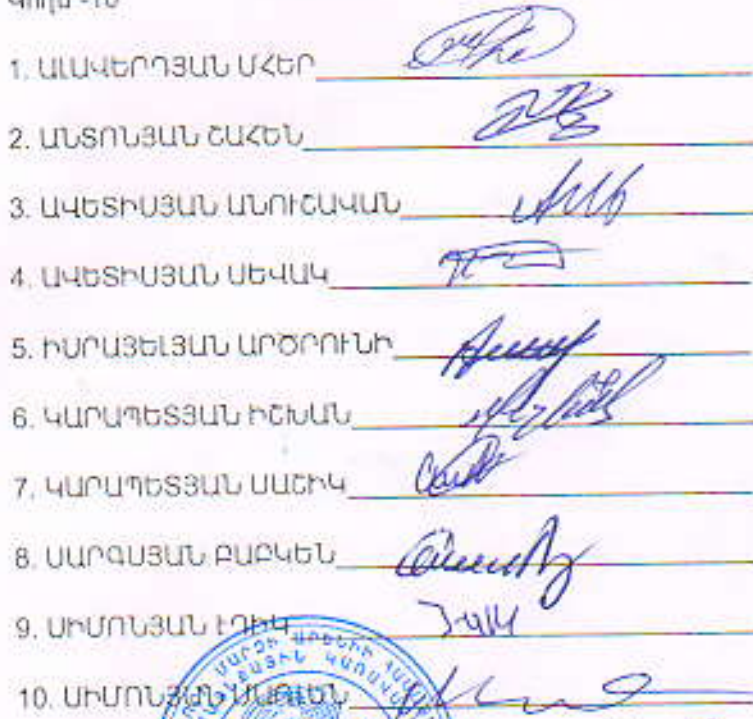 1. ԱԼԱՎԵՐԴՅԱՆ ՄՀԵՐ
2. ԱՆՏՈՆՅԱՆ ՇԱՀԵՆ
3. ԱՎԵՏԻՍՅԱՆ ԱՆՈՒՇԱՎԱՆ
4. ԱՎԵՏԻՍՅԱՆ ՍԵՎԱԿ
5. ԻՍՐԱՅԵԼՅԱՆ ԱՐԾՐՈՒՆԻ
6. ԿԱՐԱՊԵՏՅԱՆ ԻՇԽԱՆ
7. ԿԱՐԱՊԵՏՅԱՆ ՍԱՇԻԿ
8. ՍԱՐԳՍՅԱՆ ԲԱԲԿԵՆ
9. ՍԻՄՈՆՅԱՆ ԷԴԻԿ
ՄԱՐԶԻ ԱՐԵՆԻ
10. ՍԻՄՈՆՅԱՆ